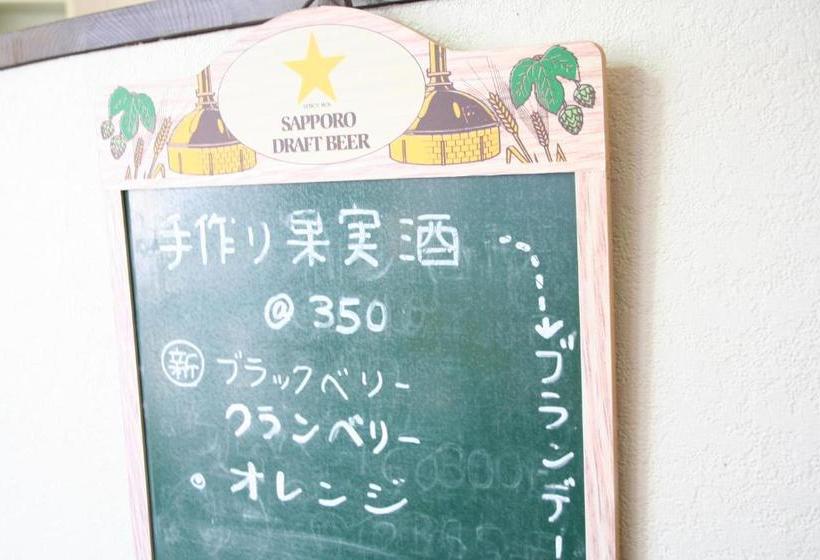 SAPPORO
DRAFT BEER
手作り果実酒
@350
新 ブラックベリー
クランベリー
オレンジ
ブランデー